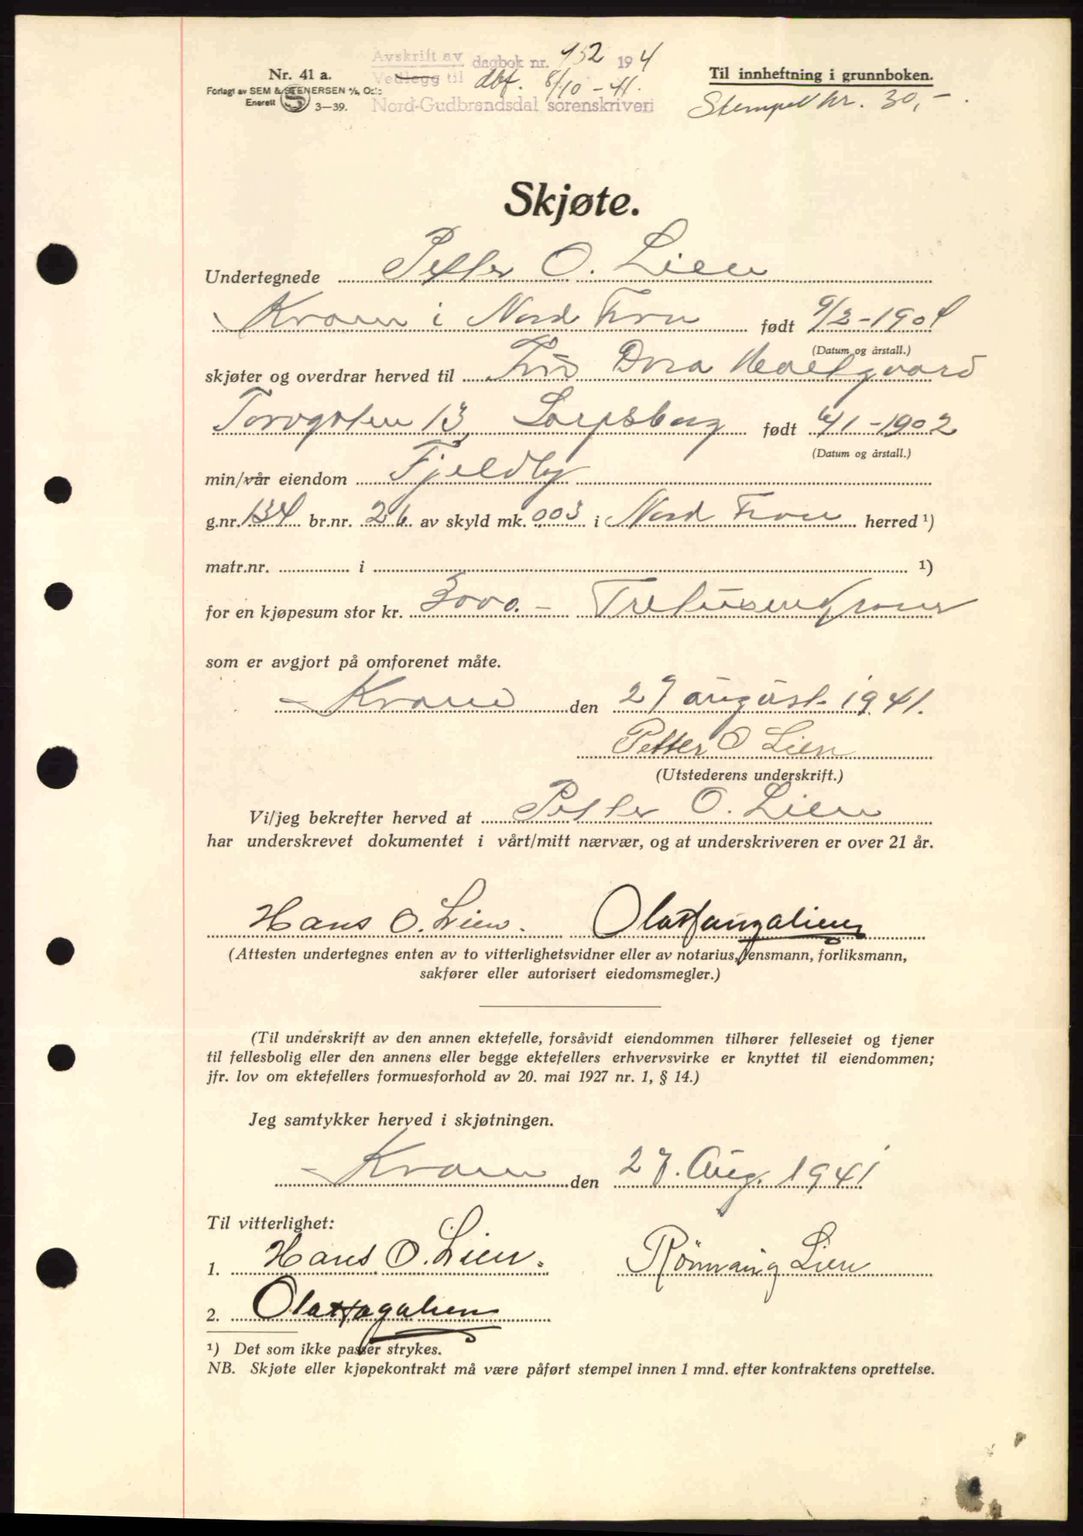 Nr. 41 a.
Forlagt av SEM & STENERSEN A/S, Oslo
Enerett S 3-39.
Avskrift av dagbok nr. 152 194
Vedlegg til dbf. 8/10-41.
Nord-Gudbrandsdal sorenskriveri
Til innheftning i grunnboken.
Stempel kr. 30,-.
Skjøte.
Undertegnede Petter O. Lien
Kvam i Nord Fron født 9/2-1904
(Datum og årstall.)
skjøter og overdrar herved til Fru Dora
Torvgaten 13, Sarpsborg født 6/1-1902
(Datum og årstall.)
min/vår eiendom Fjeldly
g.nr. 134 br.nr. 26. av skyld mk. 003 i Nord Fron herred ¹)
matr.nr. i ¹)
for en kjøpesum stor kr. 3000.- Tretusenkroner
som er avgjort på omforenet måte.
Kvam den 27 august 1941.
Petter O Lien
(Utstederens underskrift.)
Vi/jeg bekrefter herved at Petter O. Lien
har underskrevet dokumentet i vårt/mitt nærvær, og at underskriveren er over 21 år.
Hans O. Lien.
(Attesten undertegnes enten av to vitterlighetsvidner eller av notarius, lensmann, forliksmann,
sakfører eller autorisert eiedomsmegler.)
(Til underskrift av den annen ektefelle, forsåvidt eiendommen tilhører felleseiet og tjener
til fellesbolig eller den annens eller begge ektefellers erhvervsvirke er knyttet til eiendommen;
jfr. lov om ektefellers formuesforhold av 20. mai 1927 nr. 1, § 14.)
Jeg samtykker herved i skjøtningen.
Kvam den 27. Aug. 1941
Til vitterlighet:
1. Hans O. Lien. Rønnaug Lien
2.
¹) Det som ikke passer strykes.
NB. Skjøte eller kjøpekontrakt må være påført stempel innen 1 mnd. efter kontraktens oprettelse.